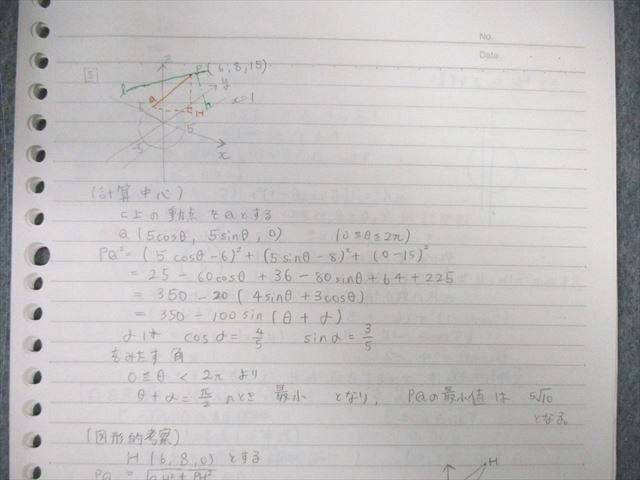 No.
Date
5
z
P(6, 8, 15)
l
y
h
x=1
Q
H
5
-5
x
(計算中心)
C上の動点をQとする
Q(5cosθ, 5sinθ, 0) (0≦θ≦2π)
PQ² = (5cosθ-6)² + (5sinθ-8)² + (0-15)²
= 25 - 60cosθ + 36 - 80sinθ + 64 + 225
= 350 - 20(4sinθ + 3cosθ)
= 350 - 100sin(θ + α)
αは cosα = 4/5 sinα = 3/5
をみたす角
0≦θ<2πより
θ+α = π/2 のとき 最小 となり, PQの最小値は 5√10
となる。
(図形的考察)
H(6, 8, 0)とする
PQ = √QH²+PH²
H